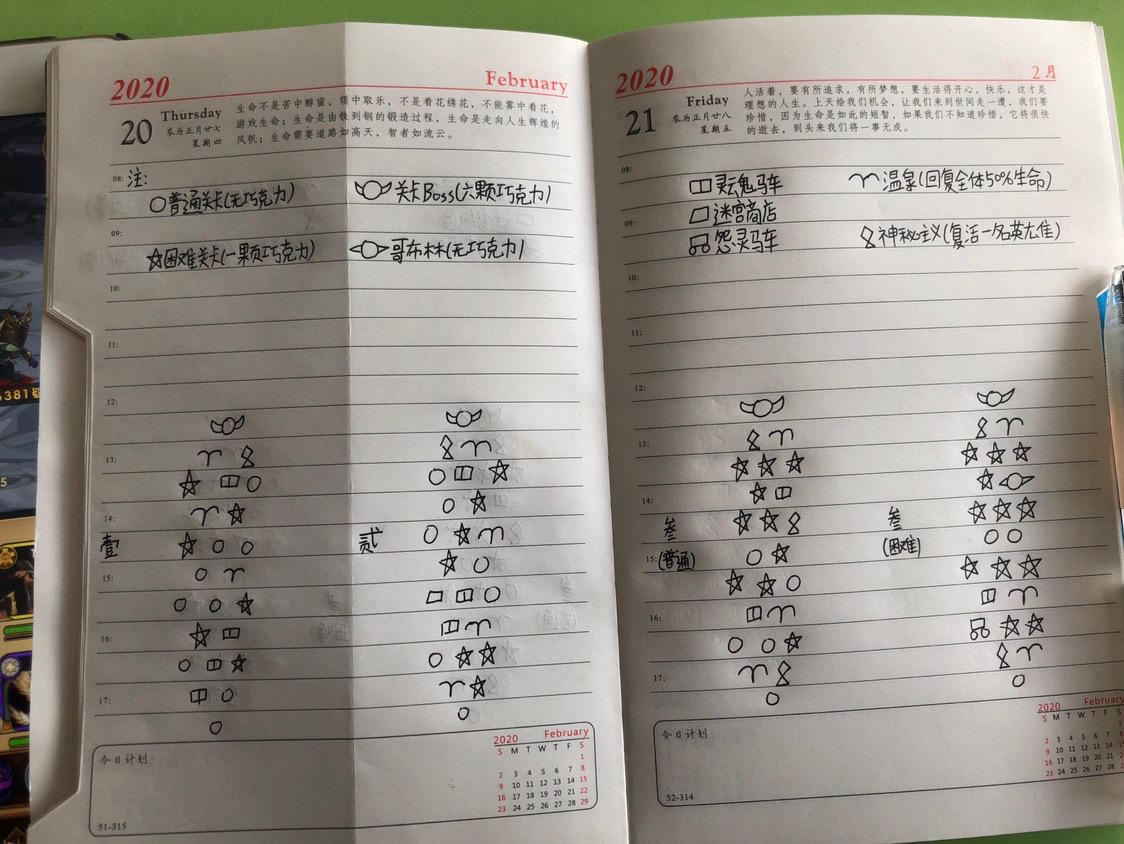 2020 February
20 Thursday
农历正月廿七
星期四
生命不是苦中醇蜜，烦中取乐，不是看花绣花，不能雾中看花，
游戏生命；生命是由铁到钢的锻造过程，生命是走向人生辉煌的
风帆；生命需要道路如高天，智者如流云。
08: 注:
○普通关卡(无巧克力)
关卡Boss(六颗巧克力)
09:
☆困难关卡(一颗巧克力)
哥布林(无巧克力)
10:
11:
12:
13:
14:
壹
贰
15:
16:
17:
今日计划:
2020 February
S M T W T F S
1
2 3 4 5 6 7 8
9 10 11 12 13 14 15
16 17 18 19 20 21 22
23 24 25 26 27 28 29
51-315
2020 2月
21 Friday
农历正月廿八
星期五
人活着，要有所追求，有所梦想，要生活得开心，快乐，这才是
理想的人生。上天给我们机会，让我们来到世间走一遭，我们要
珍惜，因为生命是如此的短暂，如果我们不知道珍惜，它将很快
的逝去，到头来我们将一事无成。
08:
灵魂马车
温泉(回复全体50%生命)
09:
迷宫商店
怨灵马车
神秘主义(复活一名英雄)
10:
11:
12:
13:
14:
叁
叁
15: (普通)
(困难)
16:
17:
今日计划:
2020 February
S M T W T F
2 3 4 5 6 7
9 10 11 12 13 14
16 17 18 19 20 21
23 24 25 26 27 28
52-314